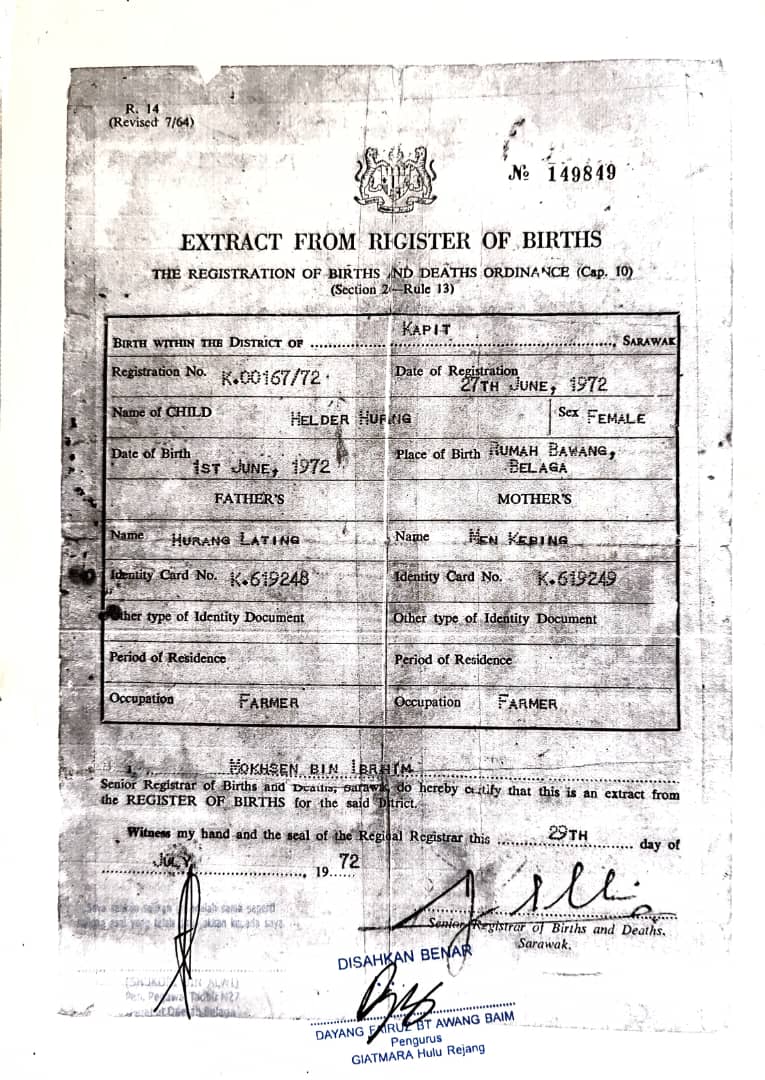 R. 14
(Revised 7/64)
№ 149849
EXTRACT FROM REGISTER OF BIRTHS
THE REGISTRATION OF BIRTHS AND DEATHS ORDINANCE (Cap. 10)
(Section 2—Rule 13)
BIRTH WITHIN THE DISTRICT OF KAPIT, SARAWAK
Registration No. K.00167/72 Date of Registration 27TH JUNE, 1972
Name of CHILD HELDER HURANG Sex FEMALE
Date of Birth 1ST JUNE, 1972 Place of Birth RUMAH BAWANG,
BELAGA
FATHER'S MOTHER'S
Name HURANG LATING Name MEN KEBING
Identity Card No. K.619248 Identity Card No. K.619249
Other type of Identity Document Other type of Identity Document
Period of Residence Period of Residence
Occupation FARMER Occupation FARMER
MOKHSEN BIN IBRAHIM
Senior Registrar of Births and Deaths, Sarawak, do hereby certify that this is an extract from
the REGISTER OF BIRTHS for the said District.
Witness my hand and the seal of the Registrar this 29TH day of
JULY, 1972
Senior Registrar of Births and Deaths.
Sarawak.
salinan adalah sama seperti
asal yang telah kepada saya
Pen. Pegawai Tadbir N27
Belaga
DISAHKAN BENAR
DAYANG FAIRUZ BT AWANG BAIM
Pengurus
GIATMARA Hulu Rejang